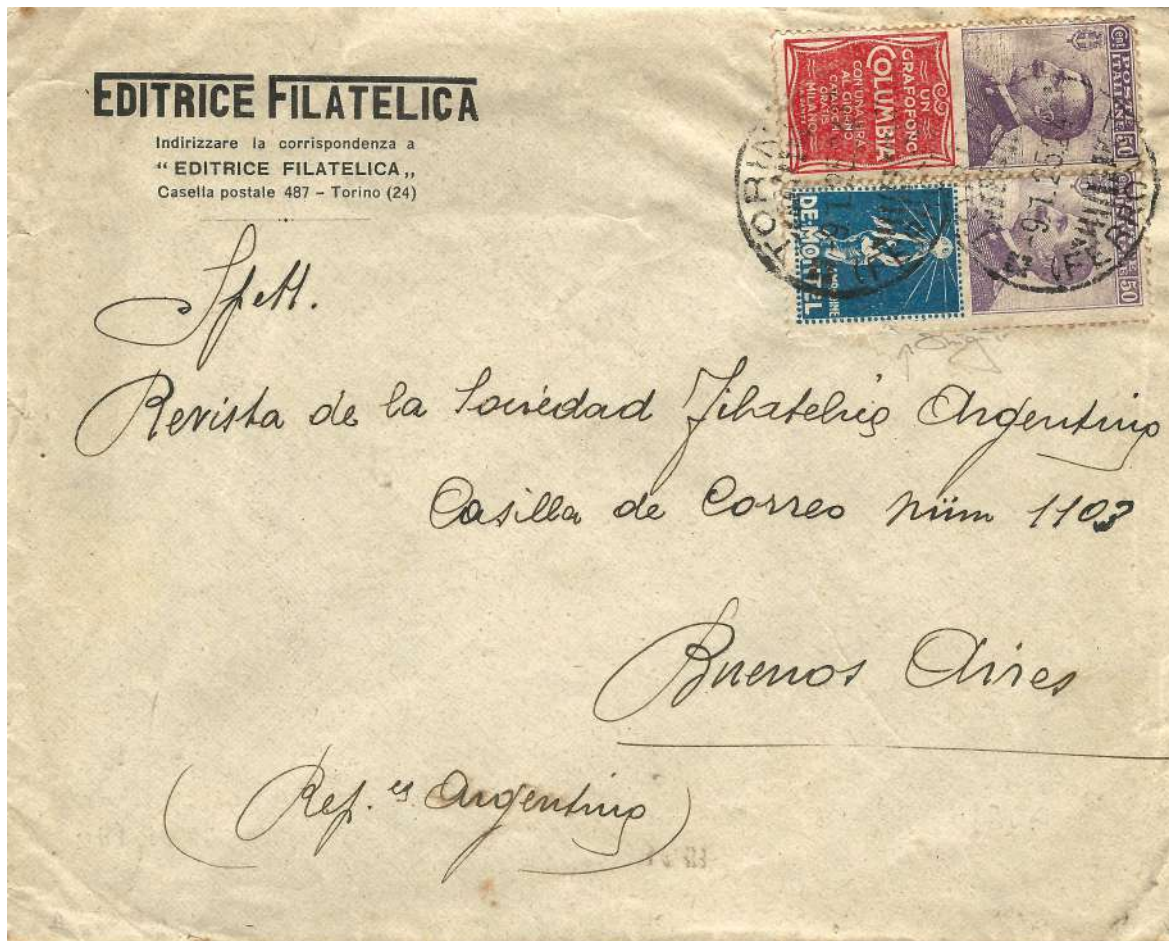 EDITRICE FILATELICA
Indirizzare la corrispondenza a
“ EDITRICE FILATELICA „
Casella postale 487 – Torino (24)
UN
GRAFOFONO
COLUMBIA
CON UNA LIRA
AL GIORNO
CATALOGO
GRATIS
MILANO
POSTE
ITALIANE
Cent 50
DE-MONTEL
50
TORINO
-9.1.25
(FERROVIA)
Spett.
Revista de la Sociedad Filatelica Argentina
Casilla de Correo núm 1103
Buenos Aires
(Rep. Argentina)